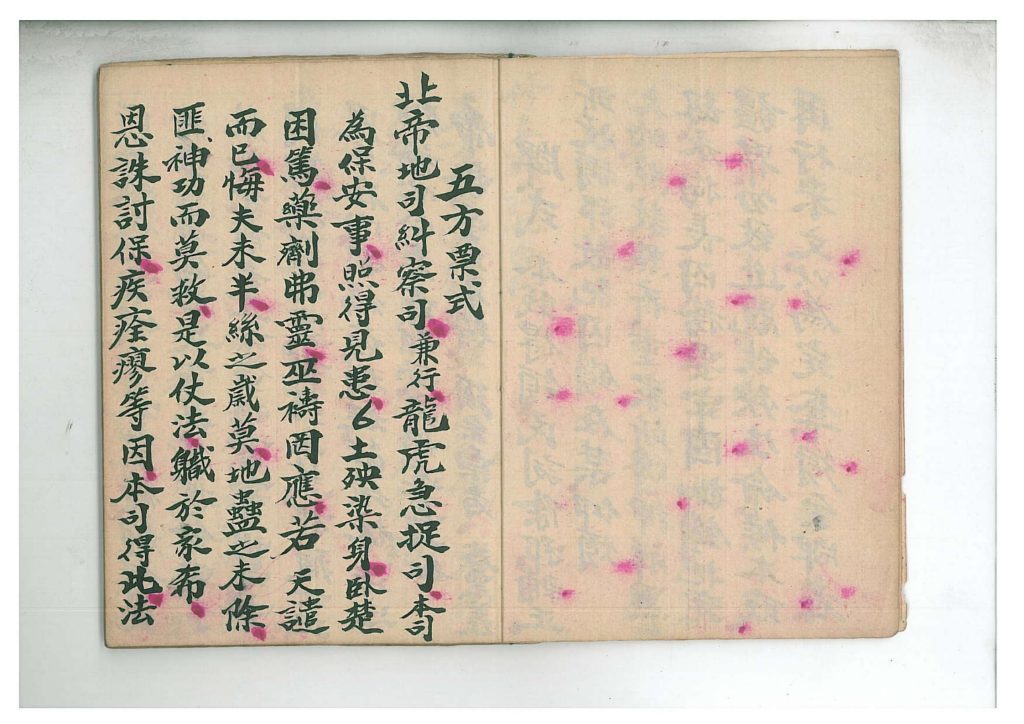 五方票式
北帝地司糾察司兼行龍虎急捉司本司
為保安事照得見患厶土殃染身臥楚
困篤藥劑弗靈巫禱罔應若 天譴
而已悔夫未半絲之歲莫地蠱之未除
匪神功而莫救是以仗法職於家布
恩誅討保疾痊瘳等因本司得此法